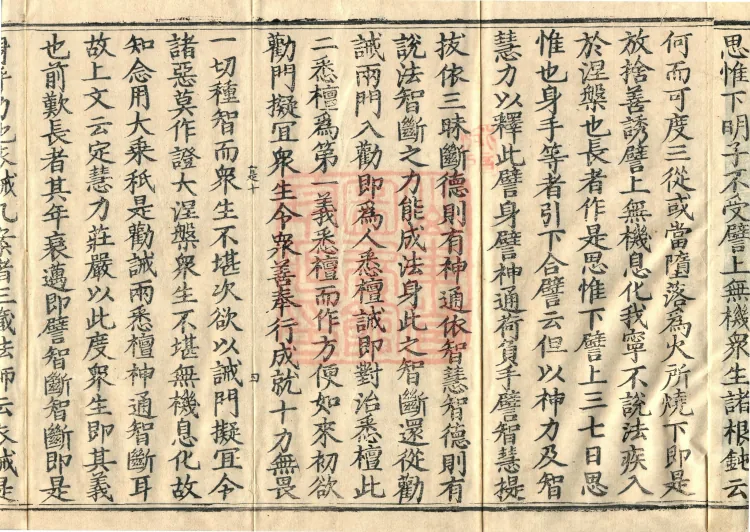 思惟下明子不受譬上無機衆生諸根鈍云
何而可度三從或當墮落爲火所燒下即是
放捨善誘譬上無機息化我寧不說法疾入
於涅槃也長者作是思惟下譬上三七日思
惟也身手等者引下合譬云但以神力及智
慧力以釋此譬身譬神通荷負手譬智慧提
拔依三昧斷德則有神通依智慧智德則有
說法智斷之力能成法身此之智斷還從勸
誡兩門入勸即爲人悉檀誡即對治悉檀此
二悉檀爲第一義悉檀而作方便如來初欲
勸門擬宜衆生令衆善奉行成就十力無畏
一切種智而衆生不堪次欲以誡門擬宜令
諸惡莫作證大涅槃衆生不堪無機息化故
知念用大乗秖是勸誡兩悉檀神通智斷耳
故上文云定慧力莊嚴以此度衆生即其義
也前歎長者其年衰邁即譬智斷智斷即是
者三藏法師云衣誡是